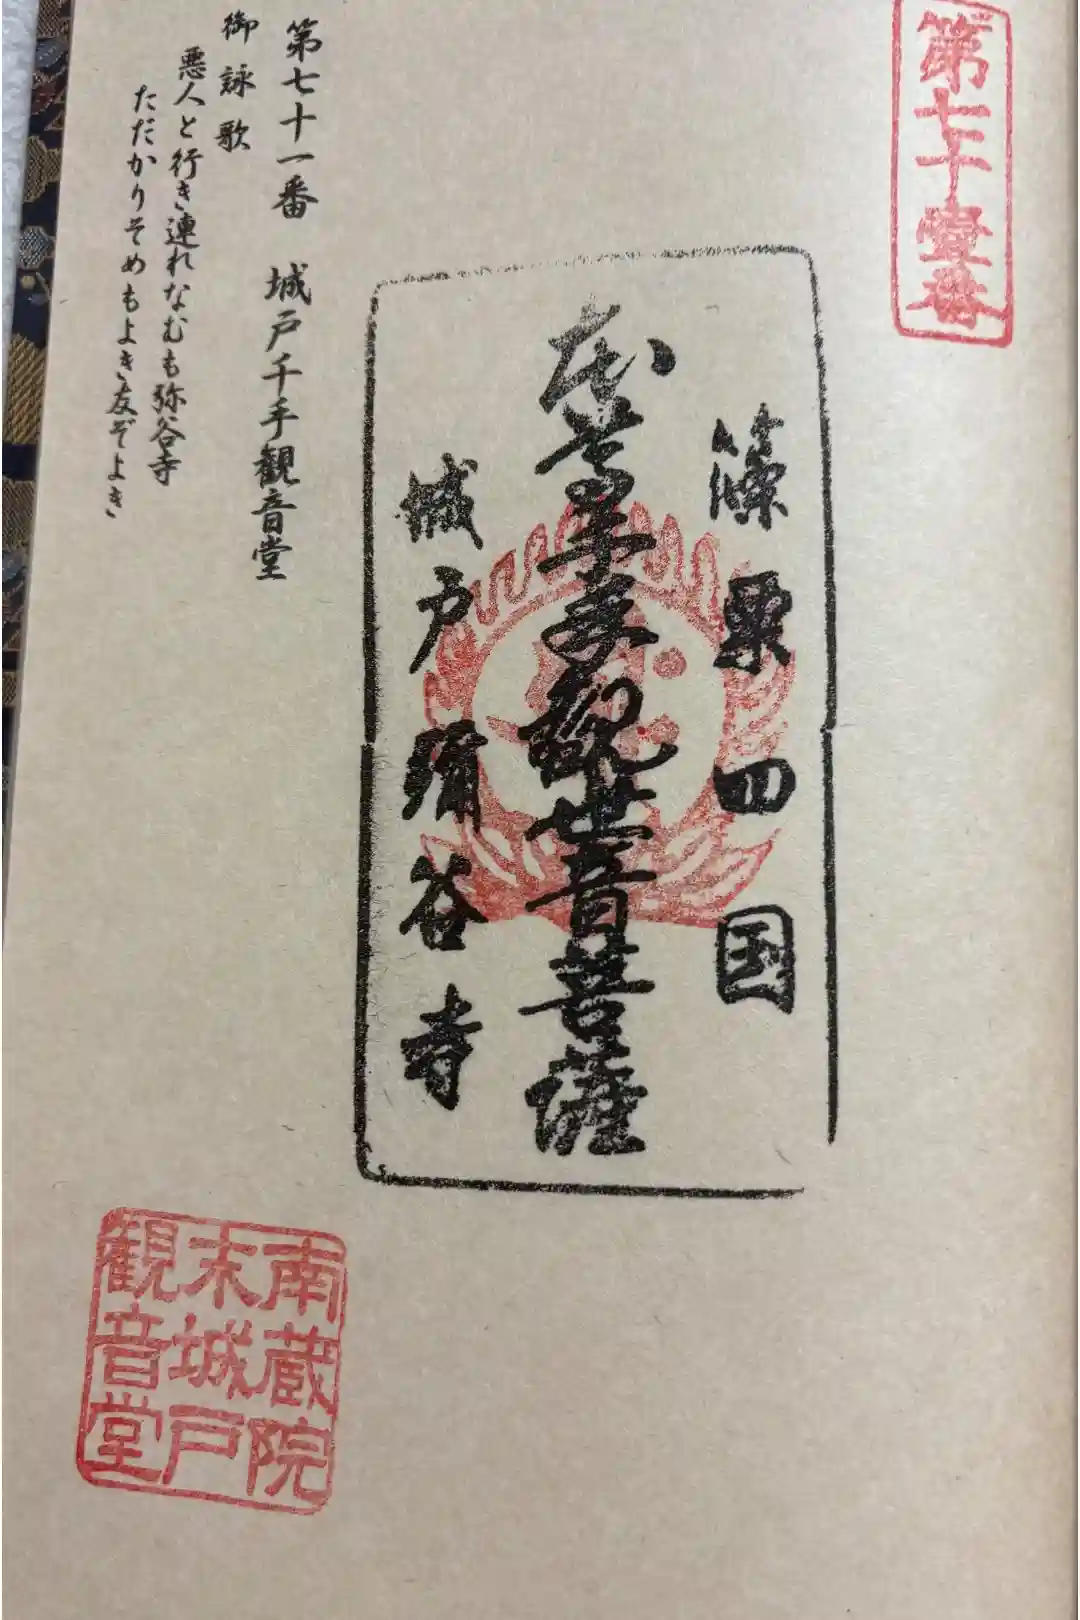 第七十壹番
篠栗四国
千手観世音菩薩
城戸彌谷寺
第七十一番　城戸千手観音堂
御詠歌
悪人と行き連れなむも弥谷寺
ただかりそめもよき友ぞよき
南蔵院
末城戸
観音堂